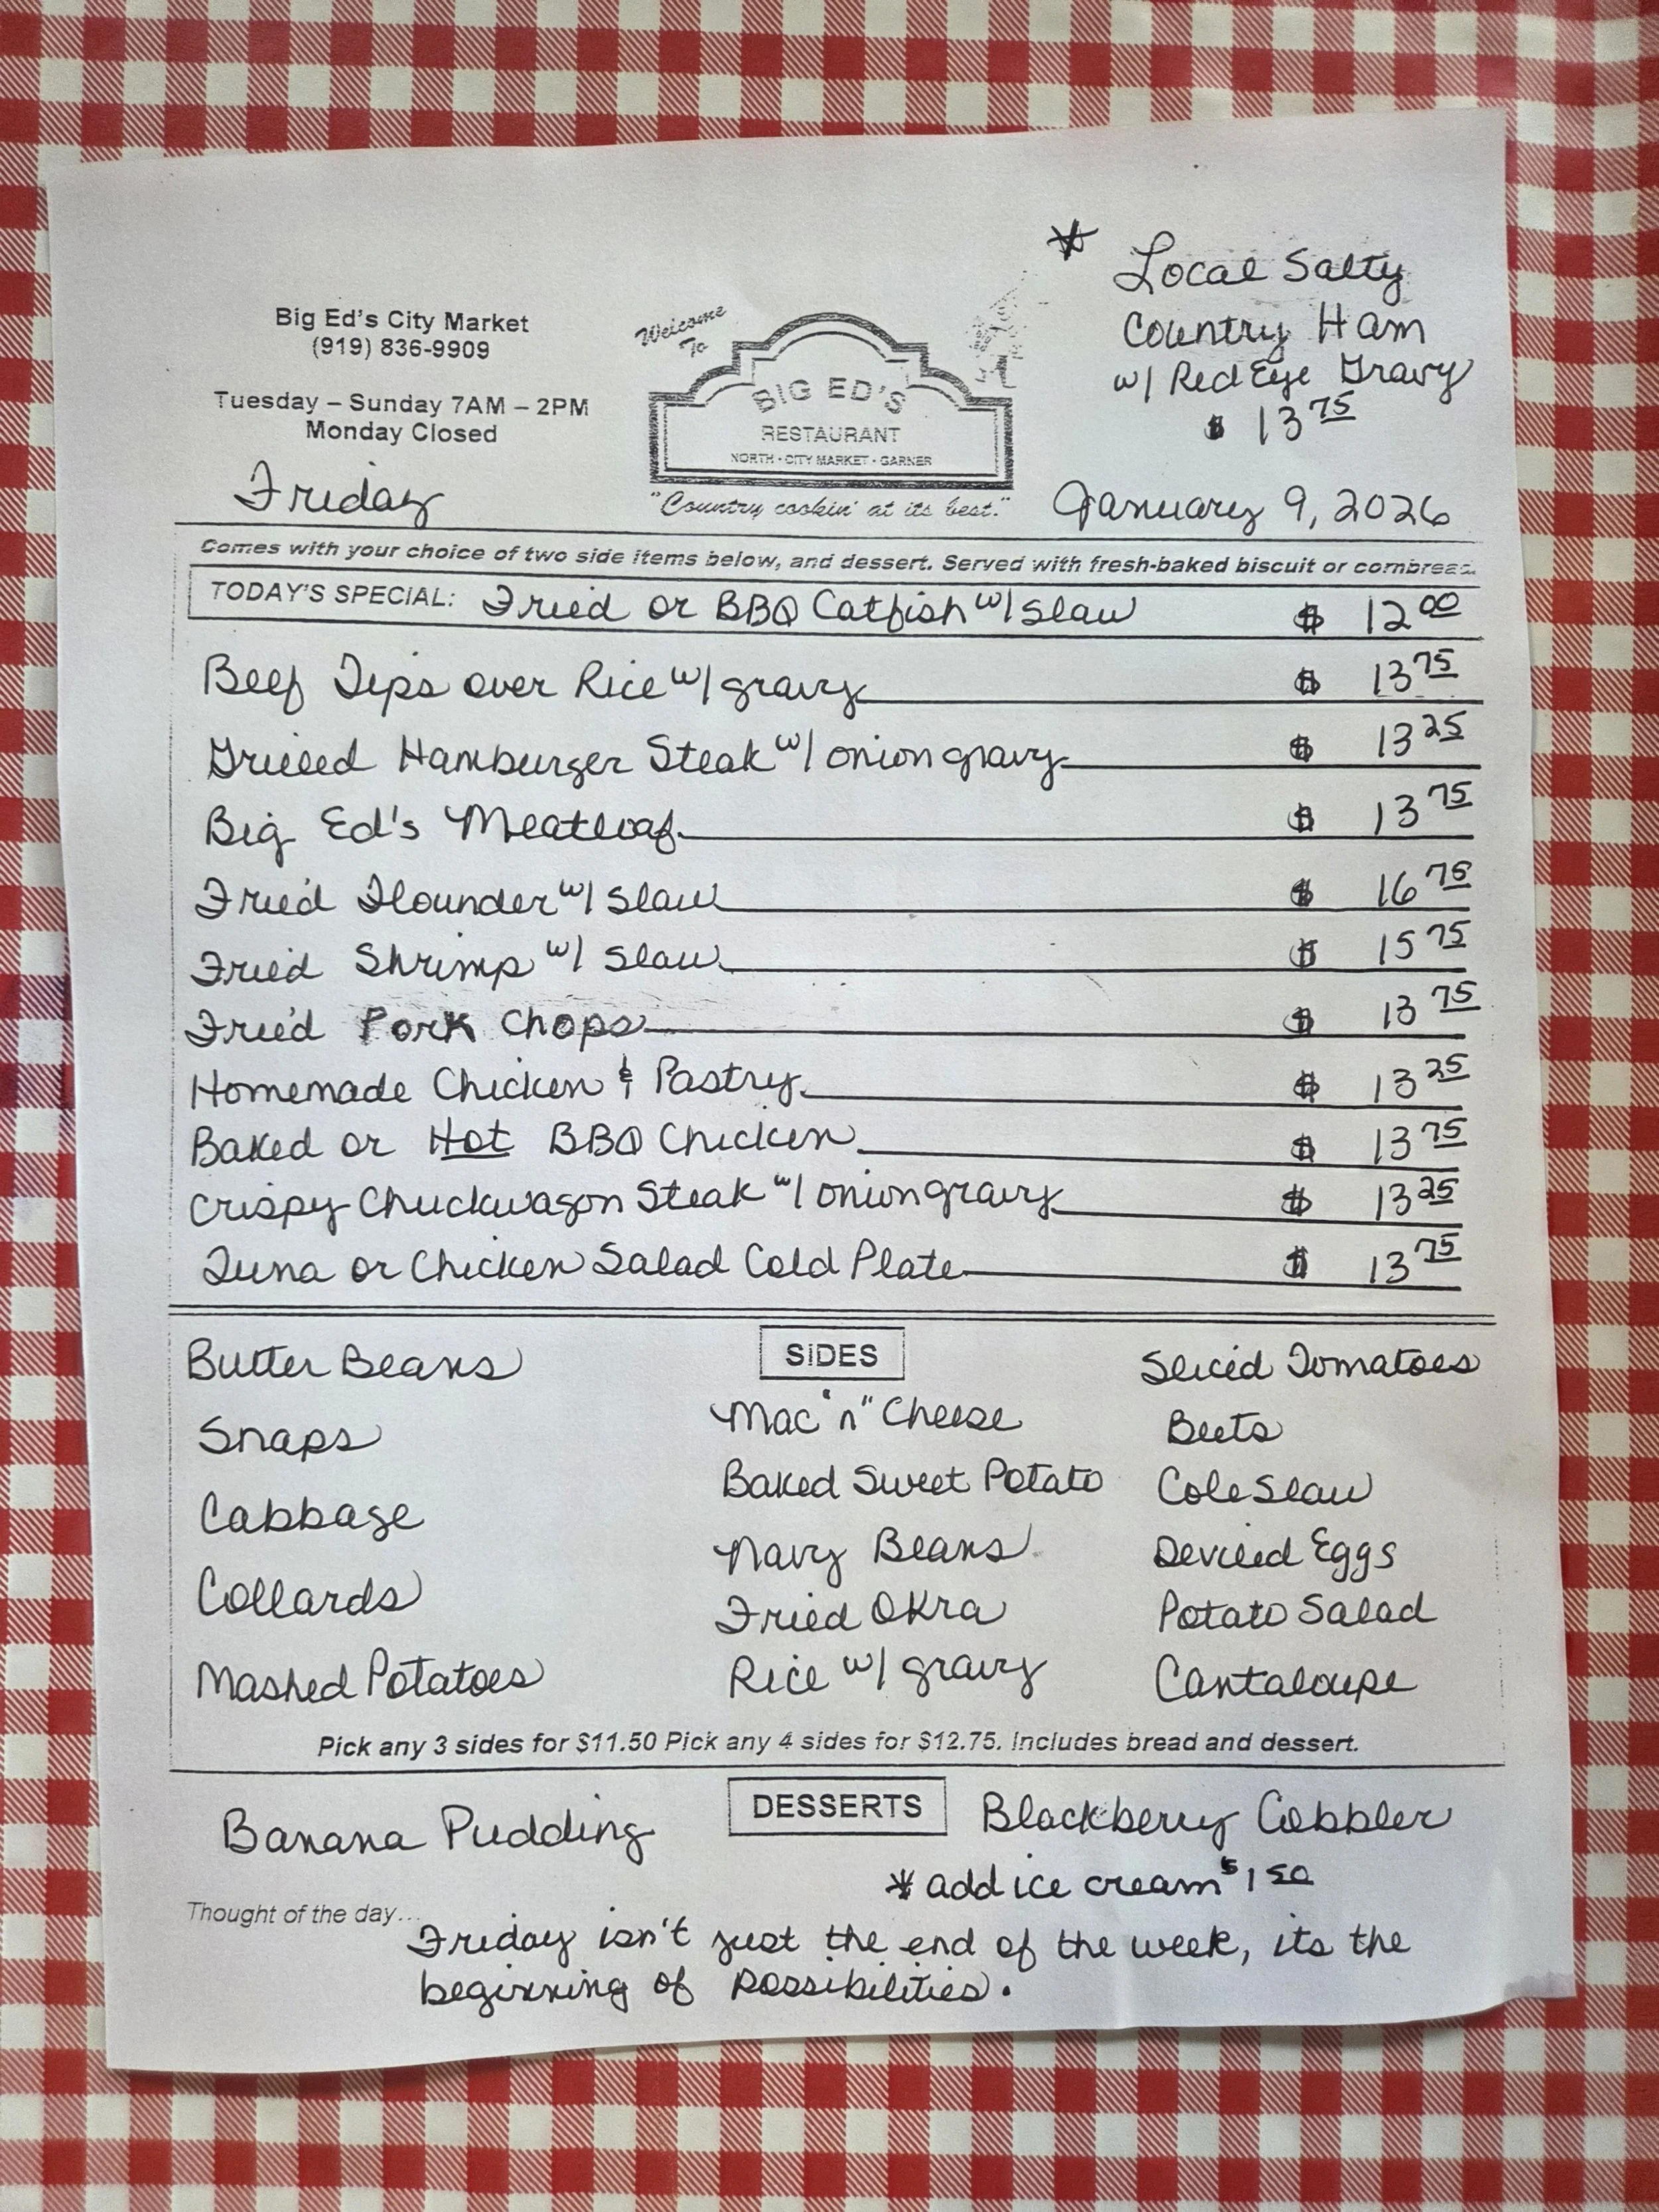 Big Ed's City Market
(919) 836-9909
Tuesday – Sunday 7AM – 2PM
Monday Closed
Friday
Welcome
To
BIG ED'S
RESTAURANT
NORTH - CITY MARKET - GARNER
"Country cookin' at its best."
* Local Salty
Country Ham
w/ Red Eye Gravy
$ 13 75
January 9, 2026
Comes with your choice of two side items below, and dessert. Served with fresh-baked biscuit or cornbread.
TODAY'S SPECIAL: Fried or BBQ Catfish w/ slaw $ 12 00
Beef Tips over Rice w/ gravy $ 13 75
Grilled Hamburger Steak w/ onion gravy $ 13 25
Big Ed's Meatloaf $ 13 75
Fried Flounder w/ slaw $ 16 75
Fried Shrimp w/ slaw $ 15 75
Fried Pork Chops $ 13 75
Homemade Chicken & Pastry $ 13 25
Baked or Hot BBQ Chicken $ 13 75
Crispy Chuckwagon Steak w/ onion gravy $ 13 25
Tuna or Chicken Salad Cold Plate $ 13 75
SIDES
Butter Beans
Snaps
Cabbage
Collards
Mashed Potatoes
Mac "n" Cheese
Baked Sweet Potato
Navy Beans
Fried Okra
Rice w/ gravy
Sliced Tomatoes
Beets
Cole Slaw
Deviled Eggs
Potato Salad
Cantaloupe
Pick any 3 sides for $11.50 Pick any 4 sides for $12.75. Includes bread and dessert.
DESSERTS
Banana Pudding
Blackberry Cobbler
* add ice cream $1 50
Thought of the day...
Friday isn't just the end of the week, its the
beginning of possibilities.